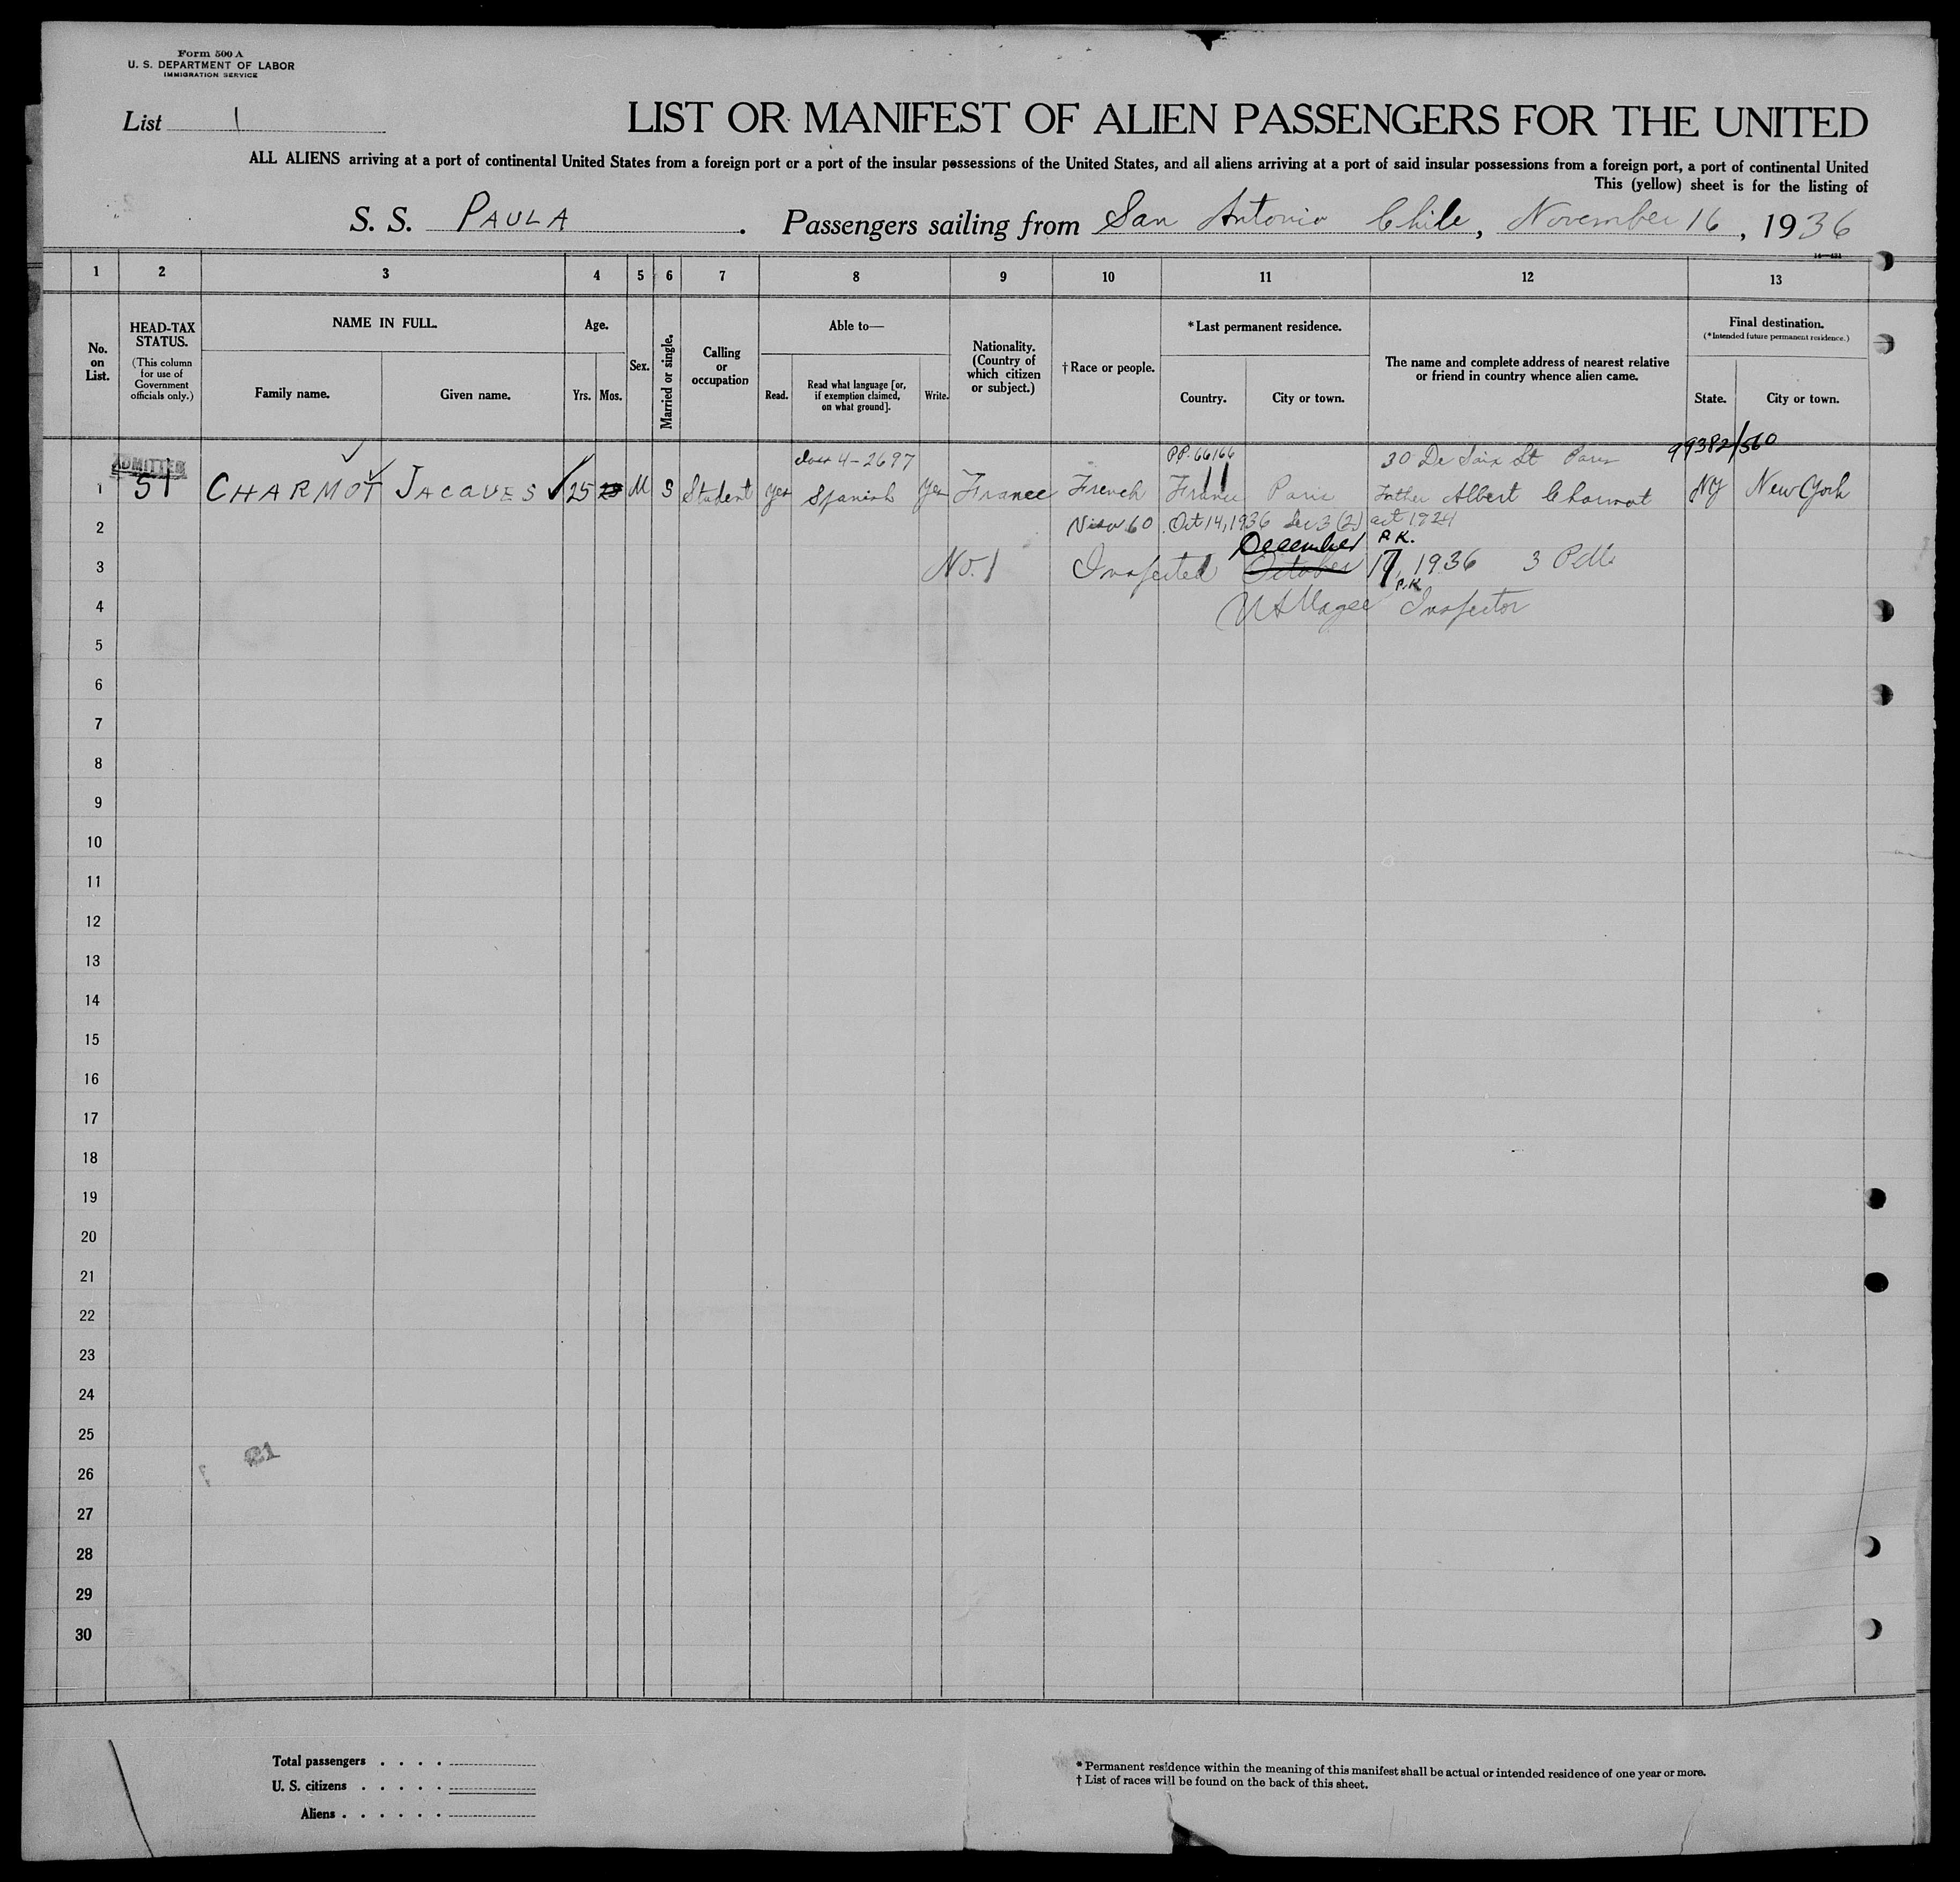 Form 500 A
U. S. DEPARTMENT OF LABOR
IMMIGRATION SERVICE
List 1
LIST OR MANIFEST OF ALIEN PASSENGERS FOR THE UNITED
ALL ALIENS arriving at a port of continental United States from a foreign port or a port of the insular possessions of the United States, and all aliens arriving at a port of said insular possessions from a foreign port, a port of continental United
This (yellow) sheet is for the listing of
S. S. PAULA. Passengers sailing from San Antonio Chile, November 16, 1936
1 2 3 4 5 6 7 8 9 10 11 12 13
No. on List.
HEAD-TAX STATUS.
(This column for use of Government officials only.)
NAME IN FULL.
Family name.
Given name.
Age.
Yrs.
Mos.
Sex.
Married or single.
Calling or occupation
Able to—
Read.
Read what language [or, if exemption claimed, on what ground].
Write.
Nationality. (Country of which citizen or subject.)
† Race or people.
* Last permanent residence.
Country.
City or town.
The name and complete address of nearest relative or friend in country whence alien came.
Final destination.
(* Intended future permanent residence.)
State.
City or town.
ADMITTED
4-2697 PP. 66166 30 De Saix St Paris 99382/560
1 ST CHARMOT JACQUES 25 M S Student yes Spanish Yes France French France 11 Paris Father Albert Charmot NY New York
2 60 Oct 14, 1936 Sec 3 (2) act 1924
December P.K.
3 No. 1 Inspected October 17, 1936 3
P.K.
4 Magee Inspector
5
6
7
8
9
10
11
12
13
14
15
16
17
18
19
20
21
22
23
24
25
26
27
28
29
30
Total passengers . . . .
U. S. citizens . . . . .
Aliens . . . . . .
* Permanent residence within the meaning of this manifest shall be actual or intended residence of one year or more.
† List of races will be found on the back of this sheet.